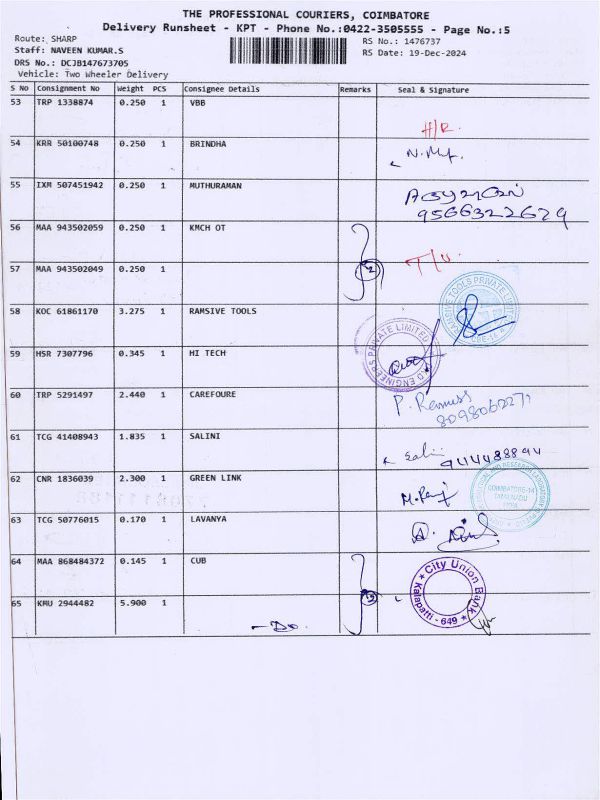 THE PROFESSIONAL COURIERS, COIMBATORE
Delivery Runsheet - KPT - Phone No.:0422-3505555 - Page No.:5
Route: SHARP
Staff: NAVEEN KUMAR.S
DRS No.: DCJB147673705
Vehicle: Two Wheeler Delivery
RS No.: 1476737
RS Date: 19-Dec-2024
S No Consignment No Weight PCS Consignee Details Remarks Seal & Signature
53 TRP 1338874 0.250 1 VBB H/R.
54 KRR 50100748 0.250 1 BRINDHA
55 IXM 507451942 0.250 1 MUTHURAMAN
9566322629
56 MAA 943502059 0.250 1 KMCH OT
57 MAA 943502049 0.250 1 2
58 KOC 61861170 3.275 1 RAMSIVE TOOLS
59 HSR 7307796 0.345 1 HI TECH
60 TRP 5291497 2.440 1 CAREFOURE
61 TCG 41408943 1.835 1 SALINI
62 CNR 1836039 2.300 1 GREEN LINK
COIMBATORE-14
TAMILNADU
INDIA
63 TCG 50776015 0.170 1 LAVANYA
64 MAA 868484372 0.145 1 CUB
City Union Bank
Kalapatti - 649
65 KMU 2944482 5.900 1
-Do.